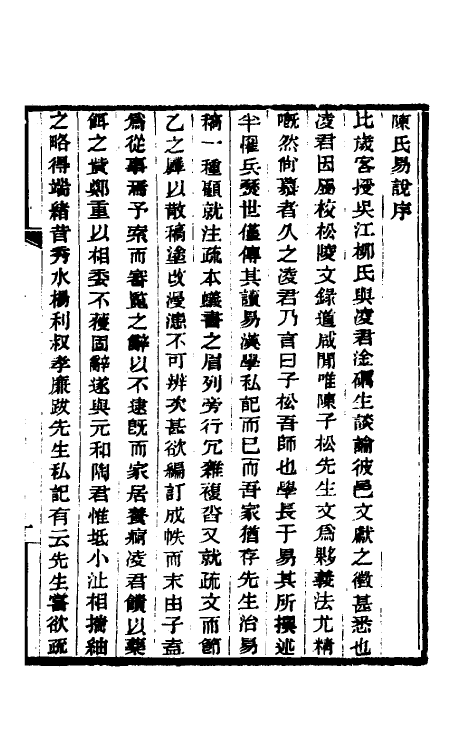 陳氏易說序
比歲客授吳江柳氏與凌君淦礪生談論彼邑文獻之徵甚悉也
凌君因屬校松陵文錄道咸閒唯陳子松先生文爲夥義法尤精
嘅然尙慕者久之凌君乃言曰子松吾師也學長于易其所撰述
半罹兵燹世僅傳其讀易漢學私記而已而吾家猶存先生治易
稿一種顧就注疏本蟻書之眉列旁行冗雜複沓又就疏文而節
乙之驊以散稿塗改漫漶不可辨次甚欲編訂成帙而末由子盍
爲從事焉予索而審覧之辭以不逮旣而家居養疴凌君饋以藥
餌之貲鄭重以相委不獲固辭遂與元和陶君惟坻小沚相擣紬
之略得端緒昔秀水楊利叔孝廉政先生私記有云先生嘗欲疏